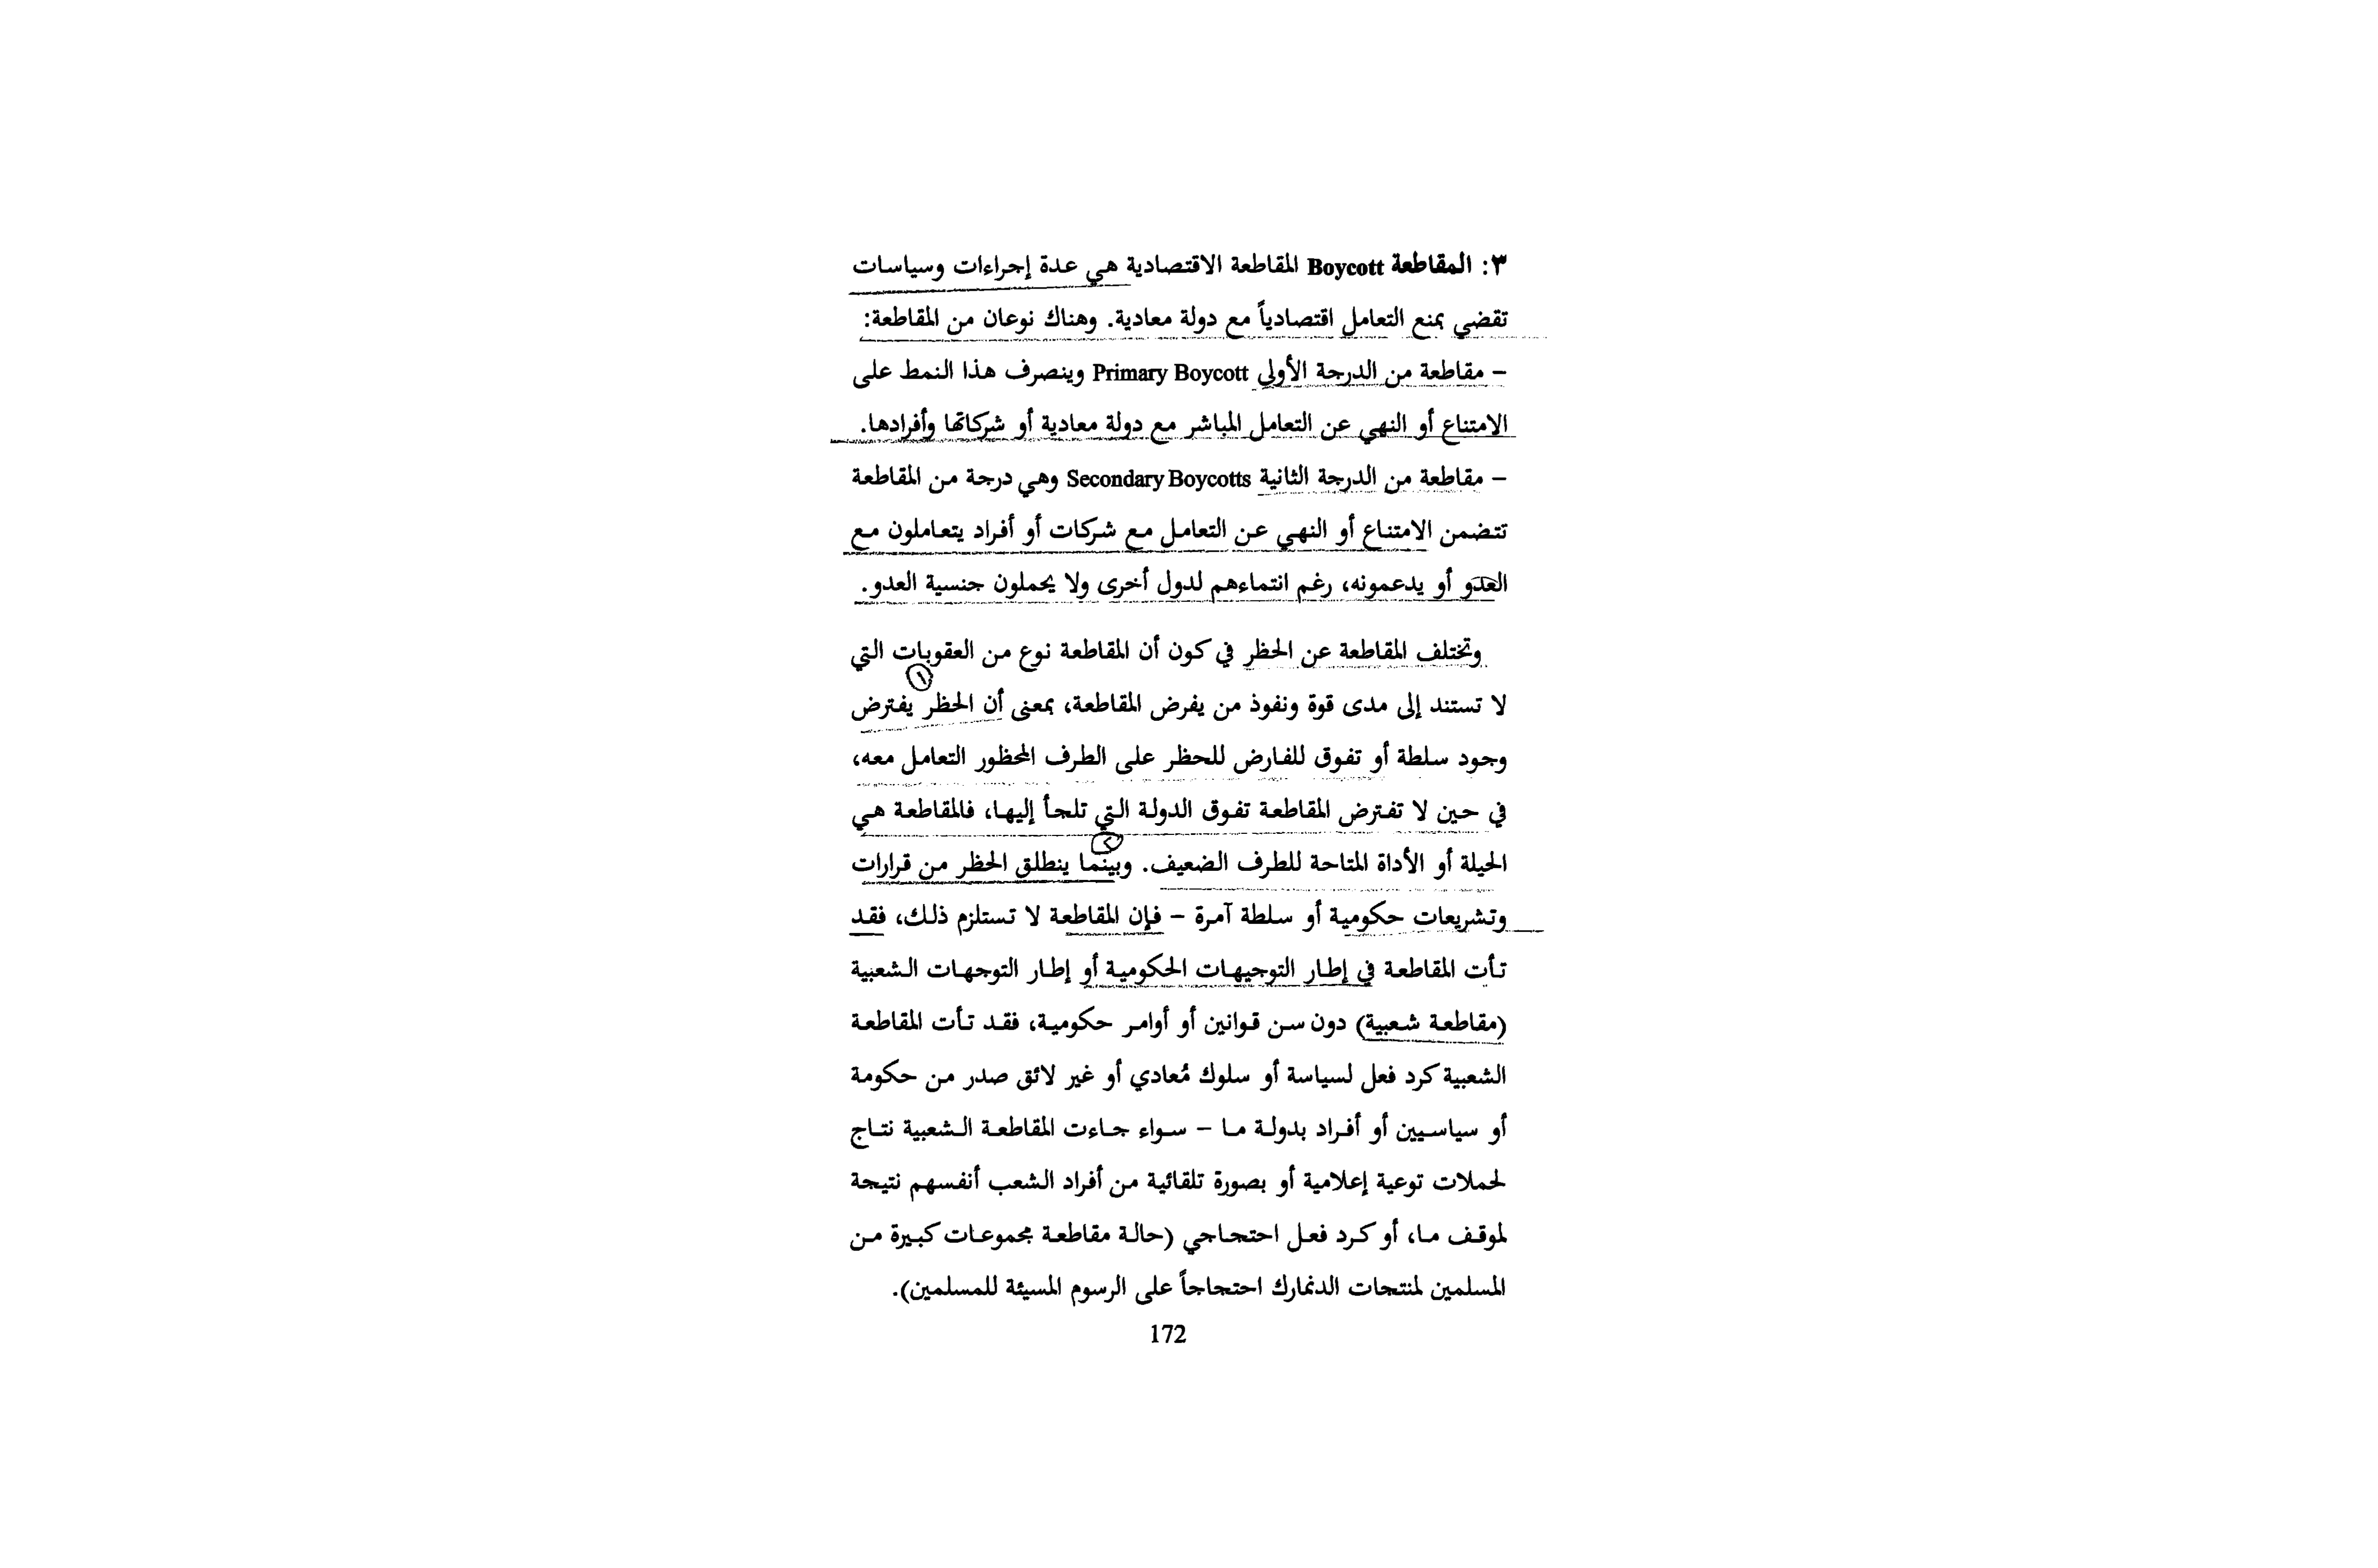 ٣: المقاطعة Boycott المقاطعة الاقتصادية هي عدة إجراءات وسياسات
تقضي بمنع التعامل اقتصادياً مع دولة معادية. وهناك نوعان من المقاطعة:
– مقاطعة من الدرجة الأولي Primary Boycott وينصرف هذا النمط على
الامتناع أو النهي عن التعامل المباشر مع دولة معادية أو شركاتها وأفرادها.
– مقاطعة من الدرجة الثانية Secondary Boycotts وهي درجة من المقاطعة
تتضمن الامتناع أو النهي عن التعامل مع شركات أو أفراد يتعاملون مع
العدو أو يدعمونه، رغم انتماءهم لدول أخرى ولا يحملون جنسية العدو.
وتختلف المقاطعة عن الحظر في كون أن المقاطعة نوع من العقوبات التي
١
لا تستند إلى مدى قوة ونفوذ من يفرض المقاطعة، بمعنى أن الحظر يفترض
وجود سلطة أو تفوق للفارض للحظر على الطرف المحظور التعامل معه،
في حين لا تفترض المقاطعة تفوق الدولة التي تلجأ إليها، فالمقاطعة هي
٢
الحيلة أو الأداة المتاحة للطرف الضعيف. وبينما ينطلق الحظر من قرارات
وتشريعات حكومية أو سلطة آمرة – فإن المقاطعة لا تستلزم ذلك، فقد
تأت المقاطعة في إطار التوجيهات الحكومية أو إطار التوجهات الشعبية
(مقاطعة شعبية) دون سن قوانين أو أوامر حكومية، فقد تأت المقاطعة
الشعبية كرد فعل لسياسة أو سلوك مُعادي أو غير لائق صدر من حكومة
أو سياسيين أو أفراد بدولة ما – سواء جاءت المقاطعة الشعبية نتاج
لحملات توعية إعلامية أو بصورة تلقائية من أفراد الشعب أنفسهم نتيجة
لموقف ما، أو كرد فعل احتجاجي (حالة مقاطعة مجموعات كبيرة من
المسلمين لمنتجات الدنمارك احتجاجاً على الرسوم المسيئة للمسلمين).
172